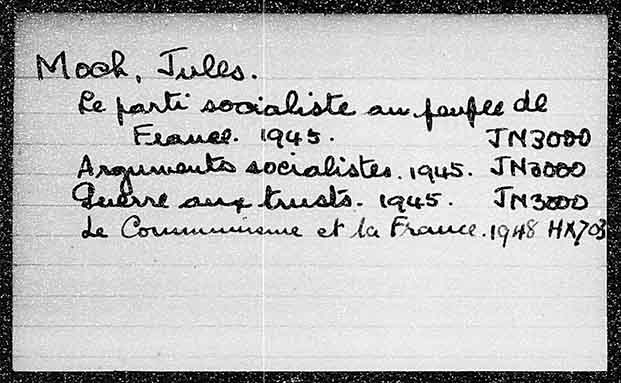 Moch, Jules.
Le parti socialiste au peuple de
France. 1945. JN3000
Arguments socialistes. 1945. JN3000
Guerre aux trusts. 1945. JN3000
Le Communisme et la France. 1948 HX703